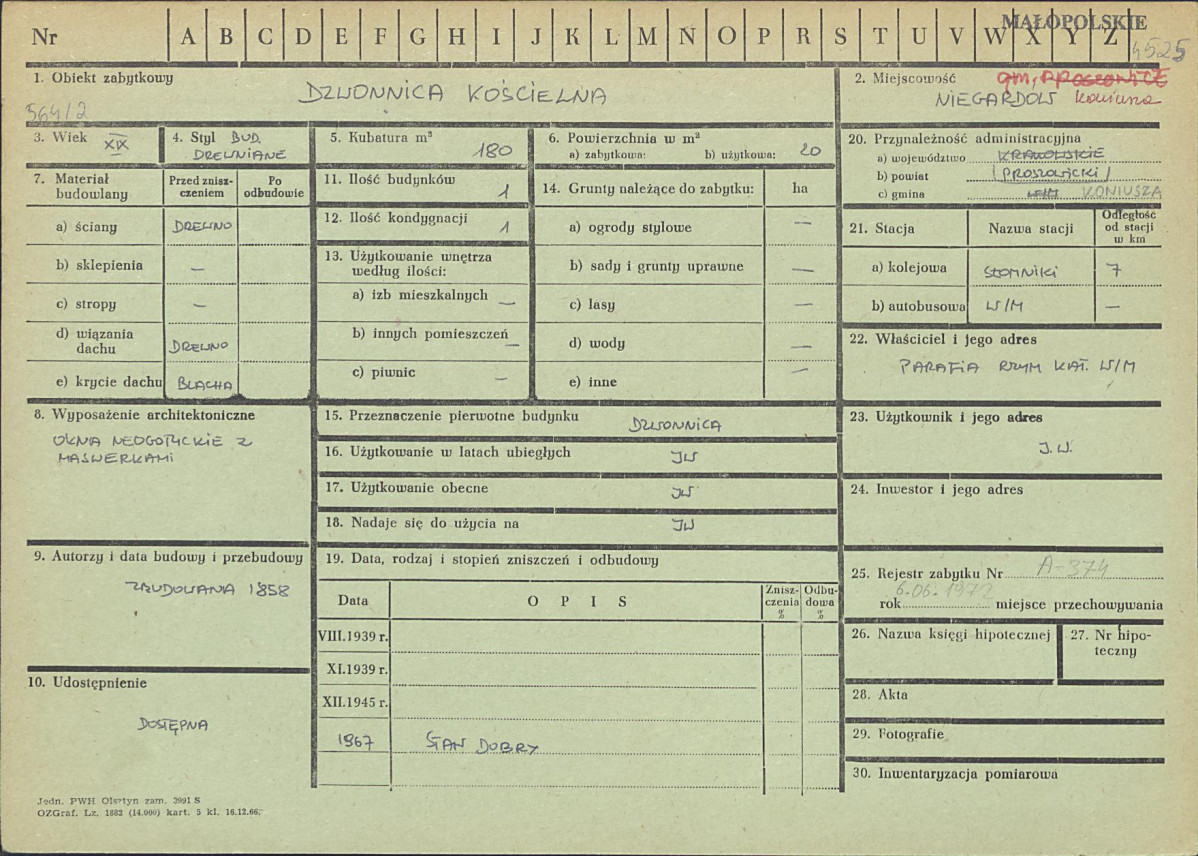 MAŁOPOLSKIE
Nr A B C D E F G H I J K L M N O P R S T U V W X Y Z
4525
1. Obiekt zabytkowy
DZWONNICA KOŚCIELNA
564/2
2. Miejscowość gm. PROSZOWICE
NIEGARDOW Koniusza
3. Wiek XIX
4. Styl BUD.
DREWNIANE
5. Kubatura m³
180
6. Powierzchnia w m²
a) zabytkowa: b) użytkowa: 20
7. Materiał budowlany
Przed zniszczeniem
Po odbudowie
a) ściany DREWNO
b) sklepienia —
c) stropy —
d) wiązania dachu DREWNO
e) krycie dachu BLACHA
8. Wyposażenie architektoniczne
OKNA NEOGOTYCKIE Z
MASWERKAMI
9. Autorzy i data budowy i przebudowy
ZBUDOWANA 1858
10. Udostępnienie
DOSTĘPNA
11. Ilość budynków 1
12. Ilość kondygnacji 1
13. Użytkowanie wnętrza
według ilości:
a) izb mieszkalnych —
b) innych pomieszczeń —
c) piwnic —
14. Grunty należące do zabytku: ha
a) ogrody stylowe —
b) sady i grunty uprawne —
c) lasy —
d) wody —
e) inne —
15. Przeznaczenie pierwotne budynku DZWONNICA
16. Użytkowanie w latach ubiegłych JW
17. Użytkowanie obecne JW
18. Nadaje się do użycia na JW
19. Data, rodzaj i stopień zniszczeń i odbudowy
Data OPIS Zniszczenia % Odbudowa %
VIII.1939 r.
XI.1939 r.
XII.1945 r.
1967 STAN DOBRY
20. Przynależność administracyjna
a) województwo KRAKOWSKIE
b) powiat (PROSZOWICKI)
c) gmina W/M KONIUSZA
21. Stacja Nazwa stacji Odległość od stacji w km
a) kolejowa SŁOMNIKI 7
b) autobusowa W/M —
22. Właściciel i jego adres
PARAFIA RZYM KAT. W/M
23. Użytkownik i jego adres
J.W.
24. Inwestor i jego adres
25. Rejestr zabytku Nr A-374
6.06.1972
rok miejsce przechowywania
26. Nazwa księgi hipotecznej
27. Nr hipoteczny
28. Akta
29. Fotografie
30. Inwentaryzacja pomiarowa
Jedn. PWH Olsztyn zam. 3991 S
OZGraf. Lz. 1882 (14.000) kart. 5 kl. 16.12.66.